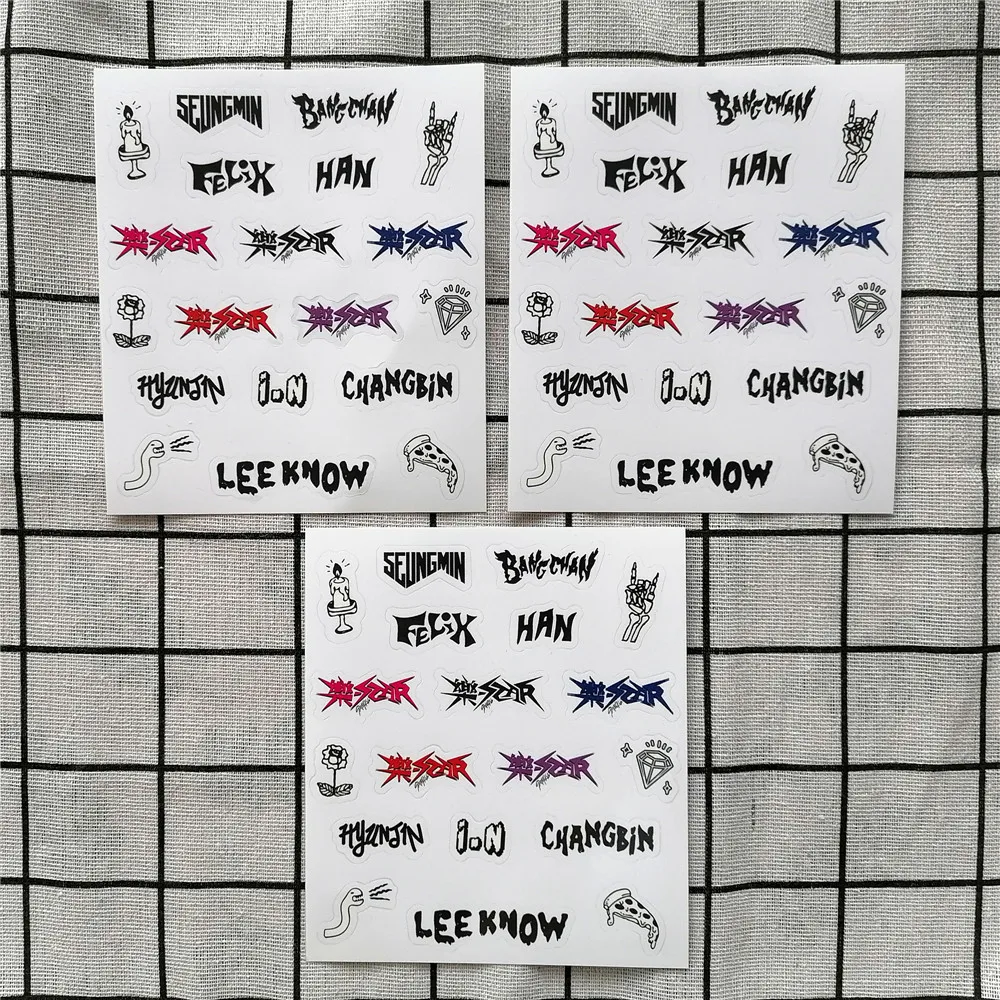 SEUNGMIN BANGCHAN
FELIX HAN
樂-STAR 樂-STAR 樂-STAR
樂-STAR 樂-STAR
HYUNJIN I.N CHANGBIN
LEE KNOW
SEUNGMIN BANGCHAN
FELIX HAN
樂-STAR 樂-STAR 樂-STAR
樂-STAR 樂-STAR
HYUNJIN I.N CHANGBIN
LEE KNOW
SEUNGMIN BANGCHAN
FELIX HAN
樂-STAR 樂-STAR 樂-STAR
樂-STAR 樂-STAR
HYUNJIN I.N CHANGBIN
LEE KNOW